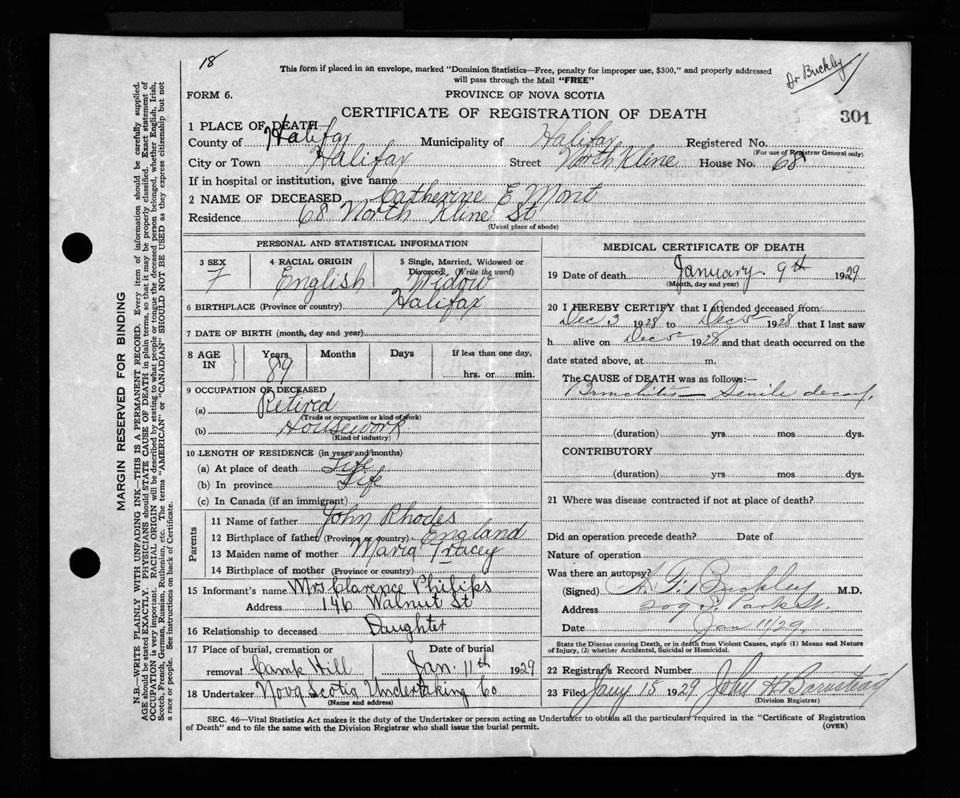 18
This form if placed in an envelope, marked "Dominion Statistics—Free, penalty for improper use, $300," and properly addressed
will pass through the Mail "FREE"
Dr Buckley
FORM 6.
PROVINCE OF NOVA SCOTIA
CERTIFICATE OF REGISTRATION OF DEATH
301
1 PLACE OF DEATH
County of Halifax Municipality of Halifax Registered No.
(For use of Registrar General only)
City or Town Halifax Street North Kline House No. 68
If in hospital or institution, give name
2 NAME OF DECEASED Catherine E Mont
Residence 68 North Kline St
(Usual place of abode)
PERSONAL AND STATISTICAL INFORMATION
3 SEX F
4 RACIAL ORIGIN English
5 Single, Married, Widowed or
Divorced, (Write the word)
Widow
6 BIRTHPLACE (Province or country) Halifax
7 DATE OF BIRTH (month, day and year)
8 AGE IN Years Months Days If less than one day,
89 hrs. or min.
9 OCCUPATION OF DECEASED
(a) Retired
(Trade or occupation or kind of work)
(b) Housework
(Kind of industry)
10 LENGTH OF RESIDENCE (in years and months)
(a) At place of death Life
(b) In province Life
(c) In Canada (if an immigrant)
Parents
11 Name of father John Rhodes
12 Birthplace of father (Province or country) England
13 Maiden name of mother Maria Tracey
14 Birthplace of mother (Province or country)
15 Informant's name Mrs Clarence Philips
Address 146 Walnut St
16 Relationship to deceased Daughter
17 Place of burial, cremation or Date of burial
removal Camp Hill Jan. 11th 1929
18 Undertaker Nova Scotia Undertaking Co
(Name and address)
MEDICAL CERTIFICATE OF DEATH
19 Date of death January 9th 1929
(Month, day and year)
20 I HEREBY CERTIFY that I attended deceased from
Dec 3 1928 to Dec 1928 that I last saw
h alive on Dec 1928 and that death occurred on the
date stated above, at m.
The CAUSE OF DEATH was as follows:—
Bronchitis — Senile decay.
(duration) yrs mos dys.
CONTRIBUTORY
(duration) yrs mos dys.
21 Where was disease contracted if not at place of death?
Did an operation precede death? Date of
Nature of operation
Was there an autopsy?
(Signed) Buckley M.D.
Address Park St.
Date Jan 11/29
State the Disease causing Death, or in death from Violent Causes, state (1) Means and Nature
of Injury, (2) whether Accidental, Suicidal or Homicidal.
22 Registrar's Record Number
23 Filed Jany 15 1929 John H Barnstead
(Division Registrar)
SEC. 46—Vital Statistics Act makes it the duty of the Undertaker or person acting as Undertaker to obtain all the particulars required in the "Certificate of Registration
of Death" and to file the same with the Division Registrar who shall issue the burial permit.
(OVER)
MARGIN RESERVED FOR BINDING
N.B.—WRITE PLAINLY WITH UNFADING INK—THIS IS A PERMANENT RECORD. Every item of information should be carefully supplied.
AGE should be stated EXACTLY. PHYSICIANS should STATE CAUSE OF DEATH in plain terms, so that it may be properly classified. Exact statement of
OCCUPATION is very important. RACIAL ORIGIN will be described by stating to what people or tongue the deceased person belonged, whether English, Irish,
Scotch, French, German, Russian, Ruthenian, etc. The terms "AMERICAN" or "CANADIAN" SHOULD NOT BE USED as they express citizenship but not
a race or people. See instructions on back of Certificate.